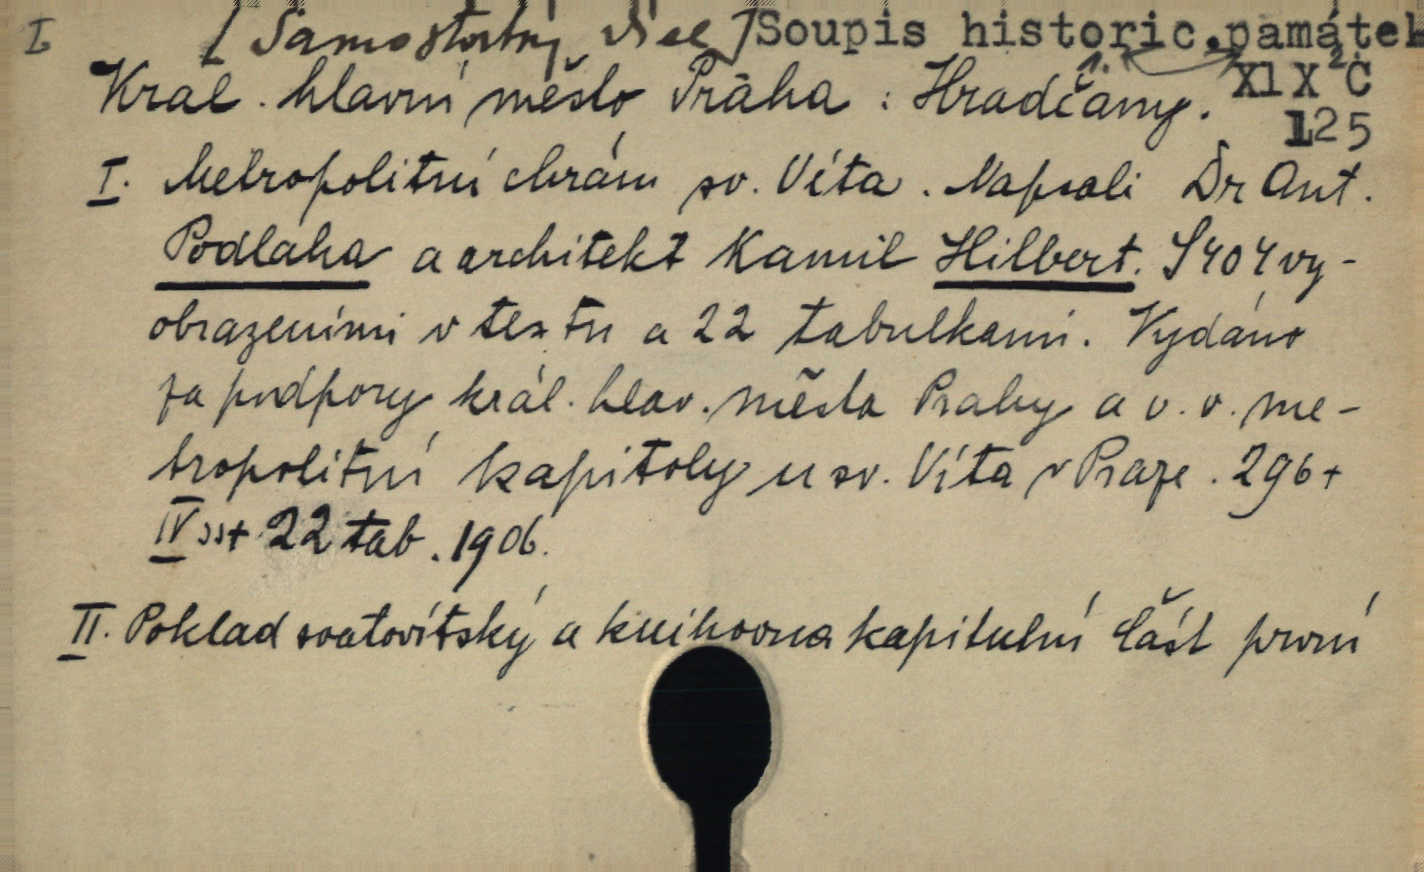 I [Samostatný všee] Soupis historic. památek
1. 2.
Král. hlavní město Praha : Hradčany. XIX C
125
I. Metropolitní chrám sv. Víta. Napsali Dr Ant.
Podlaha a architekt Kamil Hilbert. S 404 vy-
obrazeními v textu a 22 tabulkami. Vydáno
za podpory král. hlav. města Prahy a v. v. me-
tropolitní kapitoly u sv. Víta v Praze. 296+
IV ss+ 22 tab. 1906.
II. Poklad svatovítský a knihovna kapitulní část první